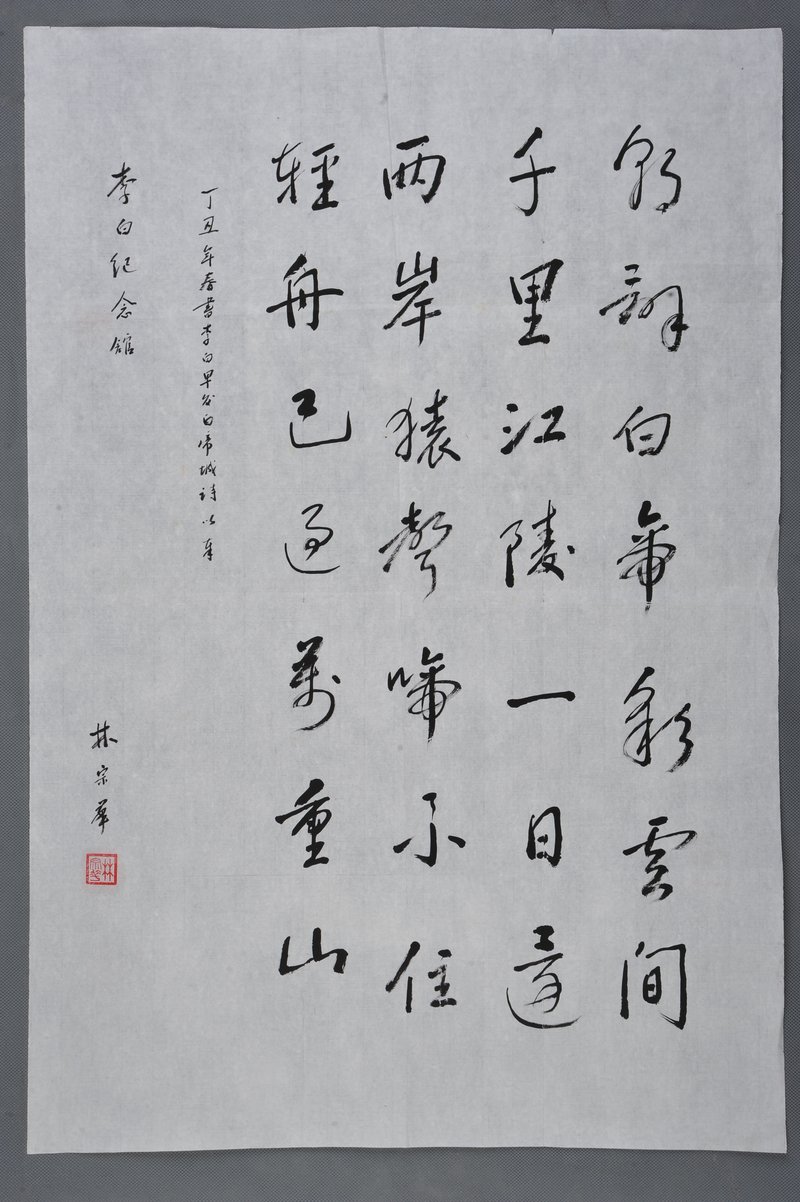 朝辞白帝彩雲间
千里江陵一日還
两岸猿聲啼不住
輕舟已過萬重山
丁丑年春書李白早发白帝城詩以奉
李白纪念館
林宗華